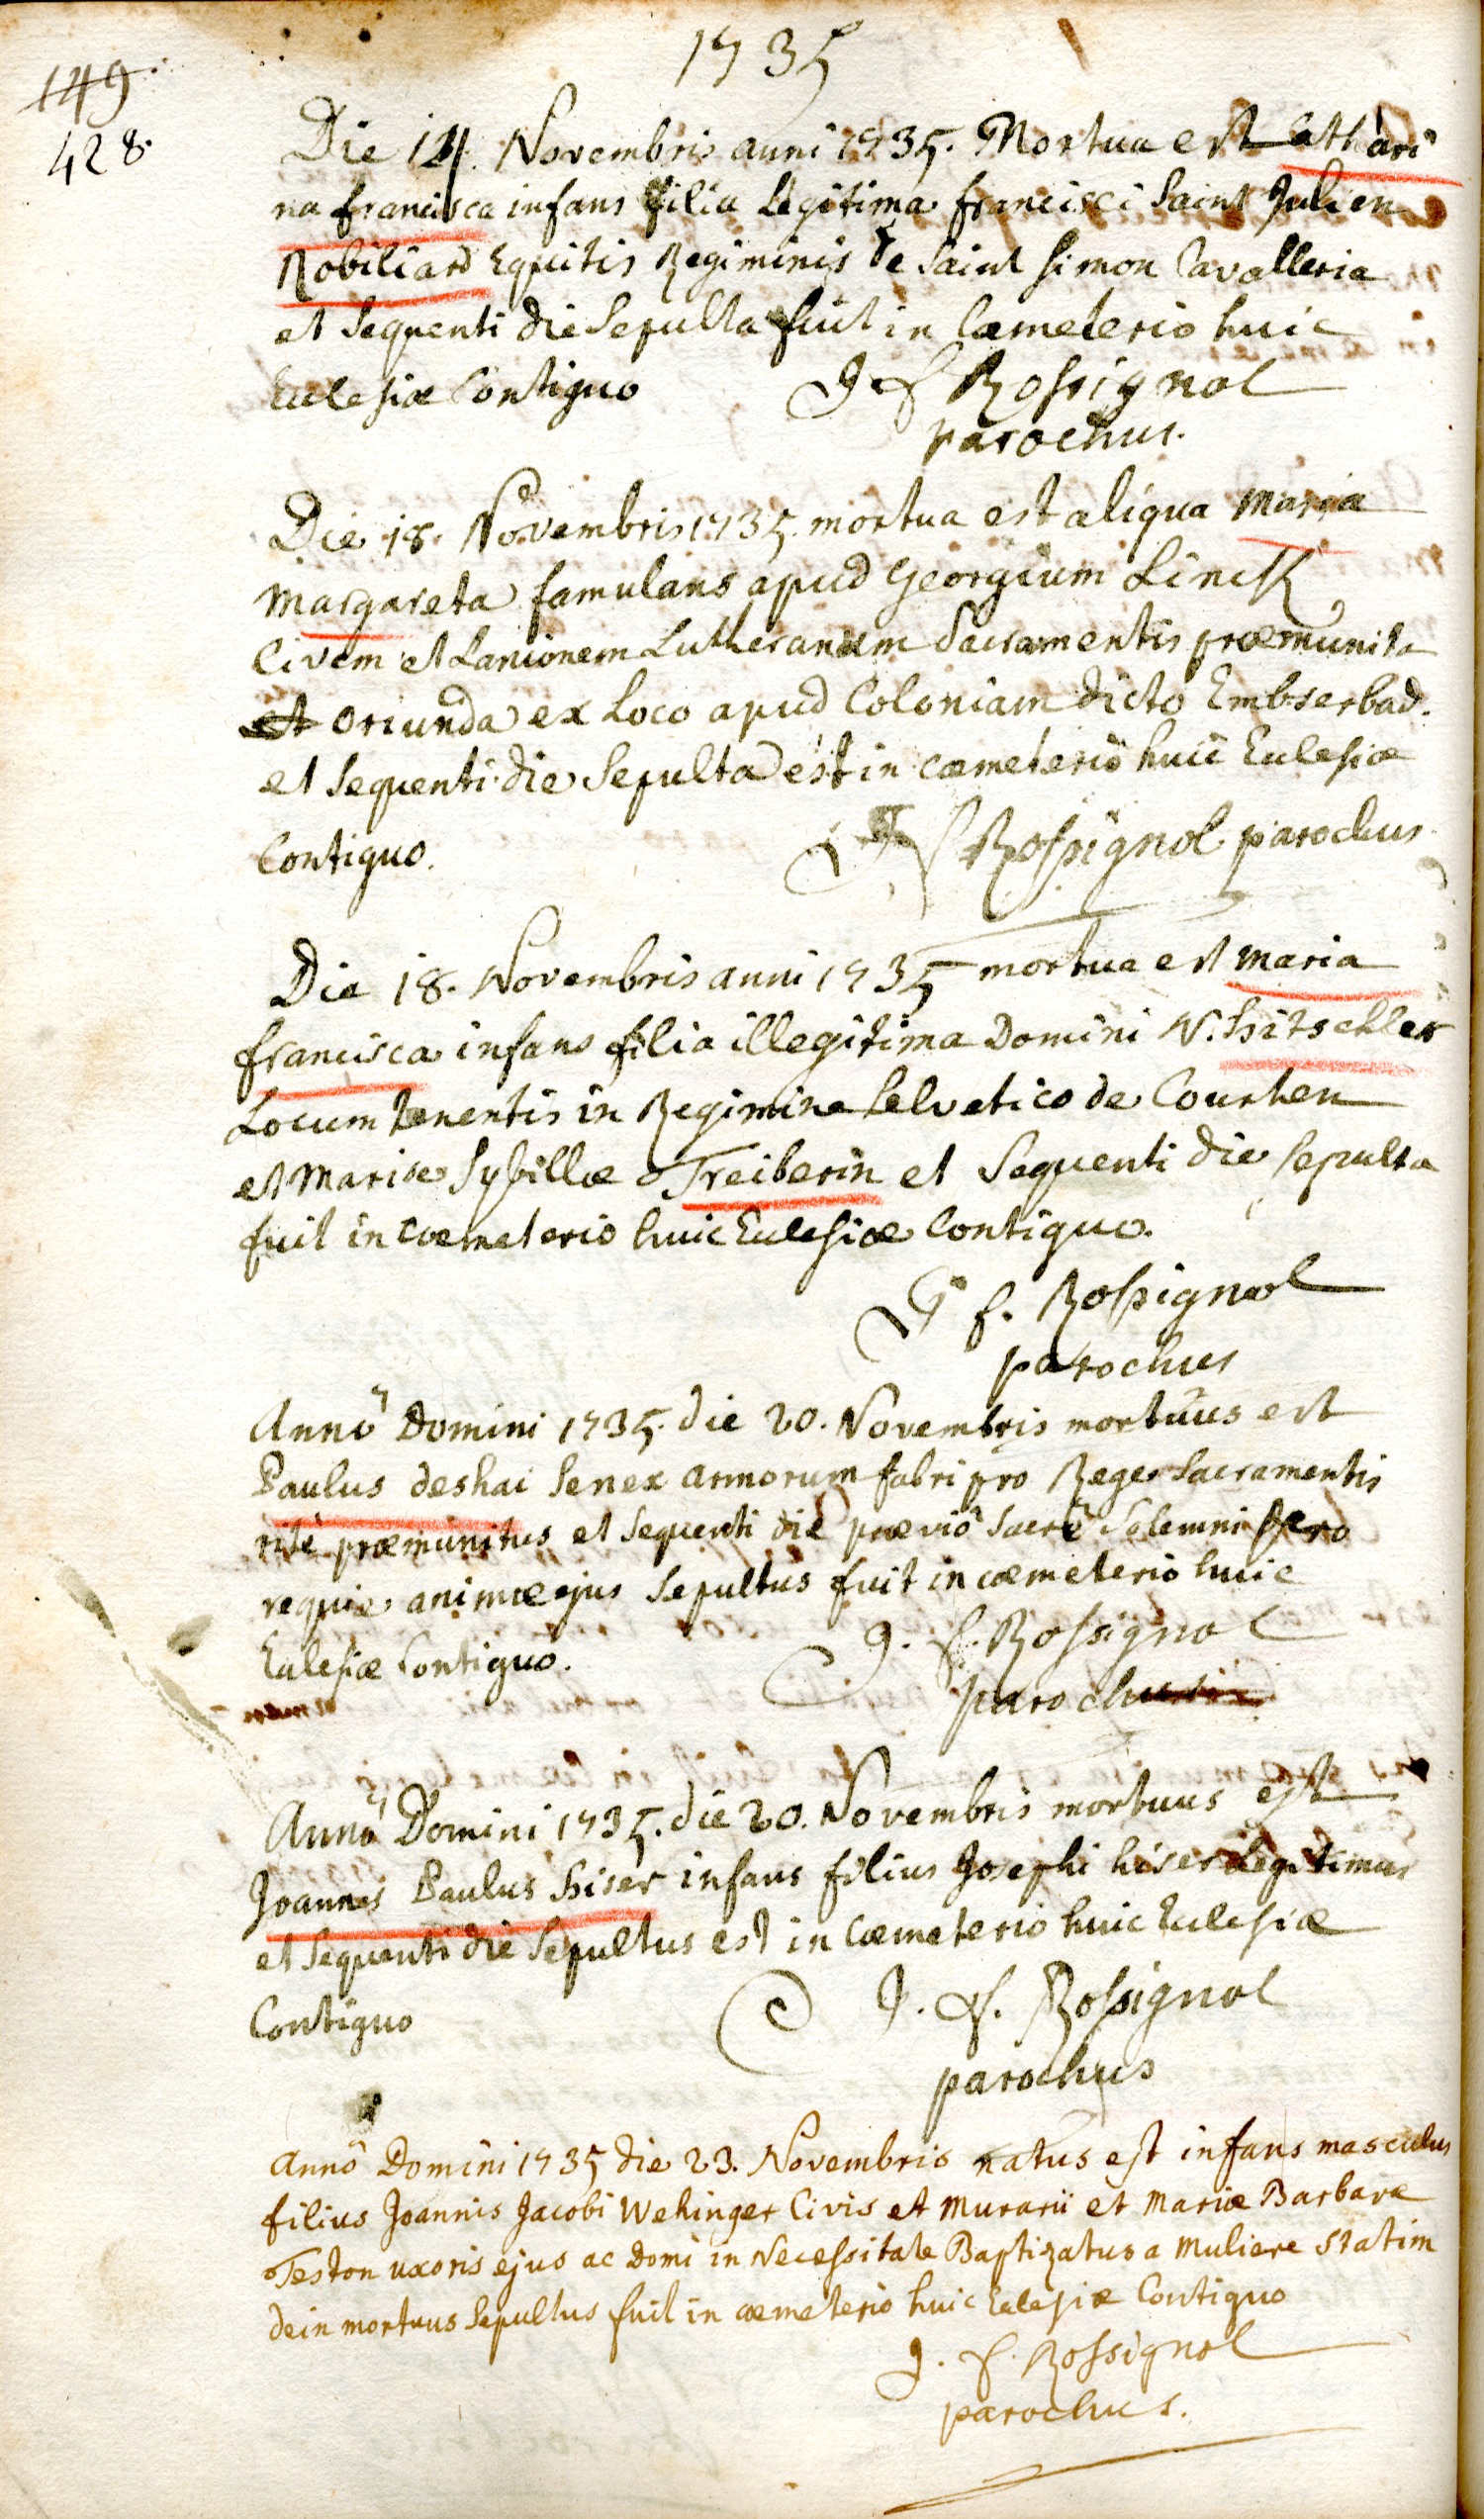 1735
149.
428.
Die 14. Novembris anni 1735. Mortua est Cathari
na francisca infans filia Legitima francisci Saint Julien
Robiliard Equitis Regiminis de Saint Simon Cavalleria
et Sequenti die Sepulta fuit in Cæmeterio huic
Ecclesiæ Contiguo J f Rossignol
parochus.
Die 18. Novembris 1735. mortua est aliqua Maria
Margareta famulans apud Georgium Linck
Civem et Lanionem Lutheranum Sacramentis præmunita
et oriunda ex Loco apud Coloniam dicto Embserbad.
et Sequenti die Sepulta est in cæmeterio huic Ecclesiæ
Contiguo. J f Rossignol parochus
Die 18. Novembris anni 1735 mortua est Maria
francisca infans filia illegitima Domini N. hitschler
Locum tenentis in Regimine helvetico de Courten
et Mariæ Sybillæ Treiberin et Sequenti die Sepulta
fuit in Cœmeterio huic Ecclesiæ Contiguo.
J f. Rossignol
parochus
Annô Domini 1735. die 20. Novembris mortuus est
Paulus deshai Senex armorum fabri pro Rege Sacramentis
ritè præmunitus et Sequenti die præviô Sacrô Solemni pro
requie animæ ejus Sepultus fuit in cæmeterio huic
Ecclesiæ Contiguo. J. f. Rossignol
parochus
Annô Domini 1735. die 20. Novembris mortuus est
Joannes Paulus hiser infans filius Josephi hiser Legitimus
et Sequenti die Sepultus est in Cæmeterio huic Ecclesiæ
Contiguo J. f. Rossignol
parochus
Annô Domini 1735 die 23. Novembris natus est infans masculus
filius Joannis Jacobi Wehinger Civis et Murarii et Mariæ Barbaræ
Teston uxoris ejus ac Domi in Necessitate Baptizatus a Muliere Statim
dein mortuus Sepultus fuit in cæmeterio huic Ecclesiæ Contiguo
J. f. Rossignol
parochus.